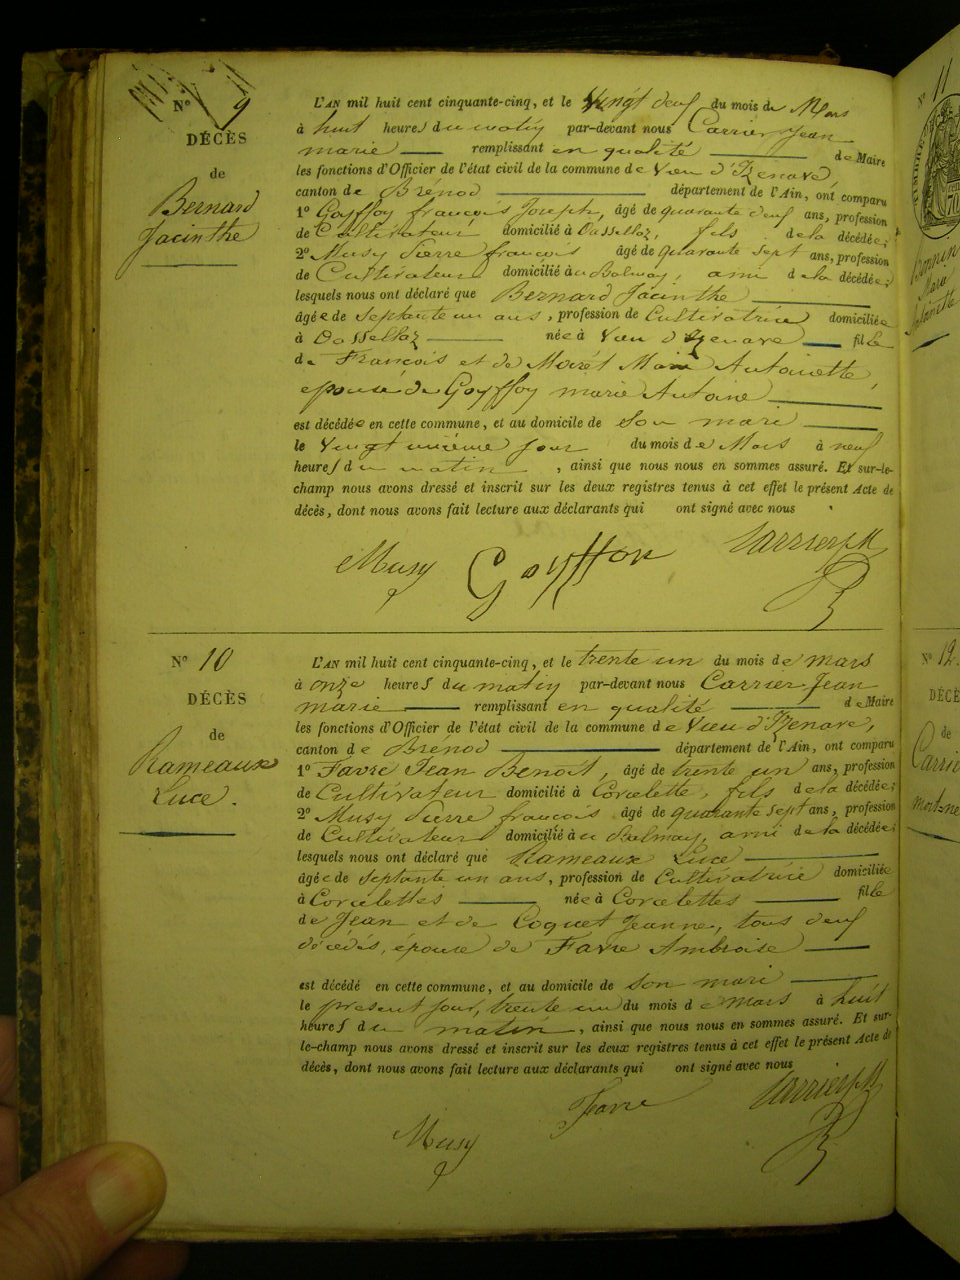 N° 9
DÉCÈS
de
Bernard
Jacinthe
L'AN mil huit cent cinquante-cinq, et le vingt deux du mois de Mars
à huit heures du matin par-devant nous Carrier Jean
marie remplissant en qualité de Maire
les fonctions d'Officier de l'état civil de la commune de Vieu d'Izenave
canton de Brénod département de l'Ain, ont comparu
1° Goyffoy françois Joseph, âgé de quarante deux ans, profession
de Cultivateur domicilié à fils de la décédée;
2° Musy Pierre françois âgé de quarante sept ans, profession
de Cultivateur domicilié au Balmay, ami de la décédée;
lesquels nous ont déclaré que Bernard Jacinthe
âgée de septante un ans, profession de Cultivatrice domiciliée
à née à Vieu d'Izenave fille
de François et de Moiret Marie Antoinette,
épouse de Goyffoy marie Antoine
est décédée en cette commune, et au domicile de son mari
le vingt unième jour du mois de Mars à neuf
heures du matin, ainsi que nous nous en sommes assuré. Et sur-le-
champ nous avons dressé et inscrit sur les deux registres tenus à cet effet le présent Acte de
décès, dont nous avons fait lecture aux déclarants qui ont signé avec nous
Musy Goyffon Carrier JM
N° 10
DÉCÈS
de
Rameaux
Luce.
L'AN mil huit cent cinquante-cinq, et le trente un du mois de mars
à onze heures du matin par-devant nous Carrier Jean
marie remplissant en qualité de Maire
les fonctions d'Officier de l'état civil de la commune de Vieu d'Izenave,
canton de Brénod département de l'Ain, ont comparu
1° Favre Jean Benoit, âgé de trente un ans, profession
de Cultivateur domicilié à Corcelette, fils de la décédée;
2° Musy Pierre françois âgé de quarante sept ans, profession
de Cultivateur domicilié au Balmay, ami de la décédée;
lesquels nous ont déclaré que Rameaux Luce
âgée de septante un ans, profession de Cultivatrice domiciliée
à Corcelettes née à Corcelettes fille
de Jean et de Coquet Jeanne, tous deux
décédés, épouse de Favre Ambroise
est décédé en cette commune, et au domicile de son mari
le présent jour, trente un du mois de mars à huit
heures du matin, ainsi que nous nous en sommes assuré. Et sur-
le-champ nous avons dressé et inscrit sur les deux registres tenus à cet effet le présent Acte de
décès, dont nous avons fait lecture aux déclarants qui ont signé avec nous
Musy Favre Carrier JM
N° 11
N° 12.
DÉCÈ
de